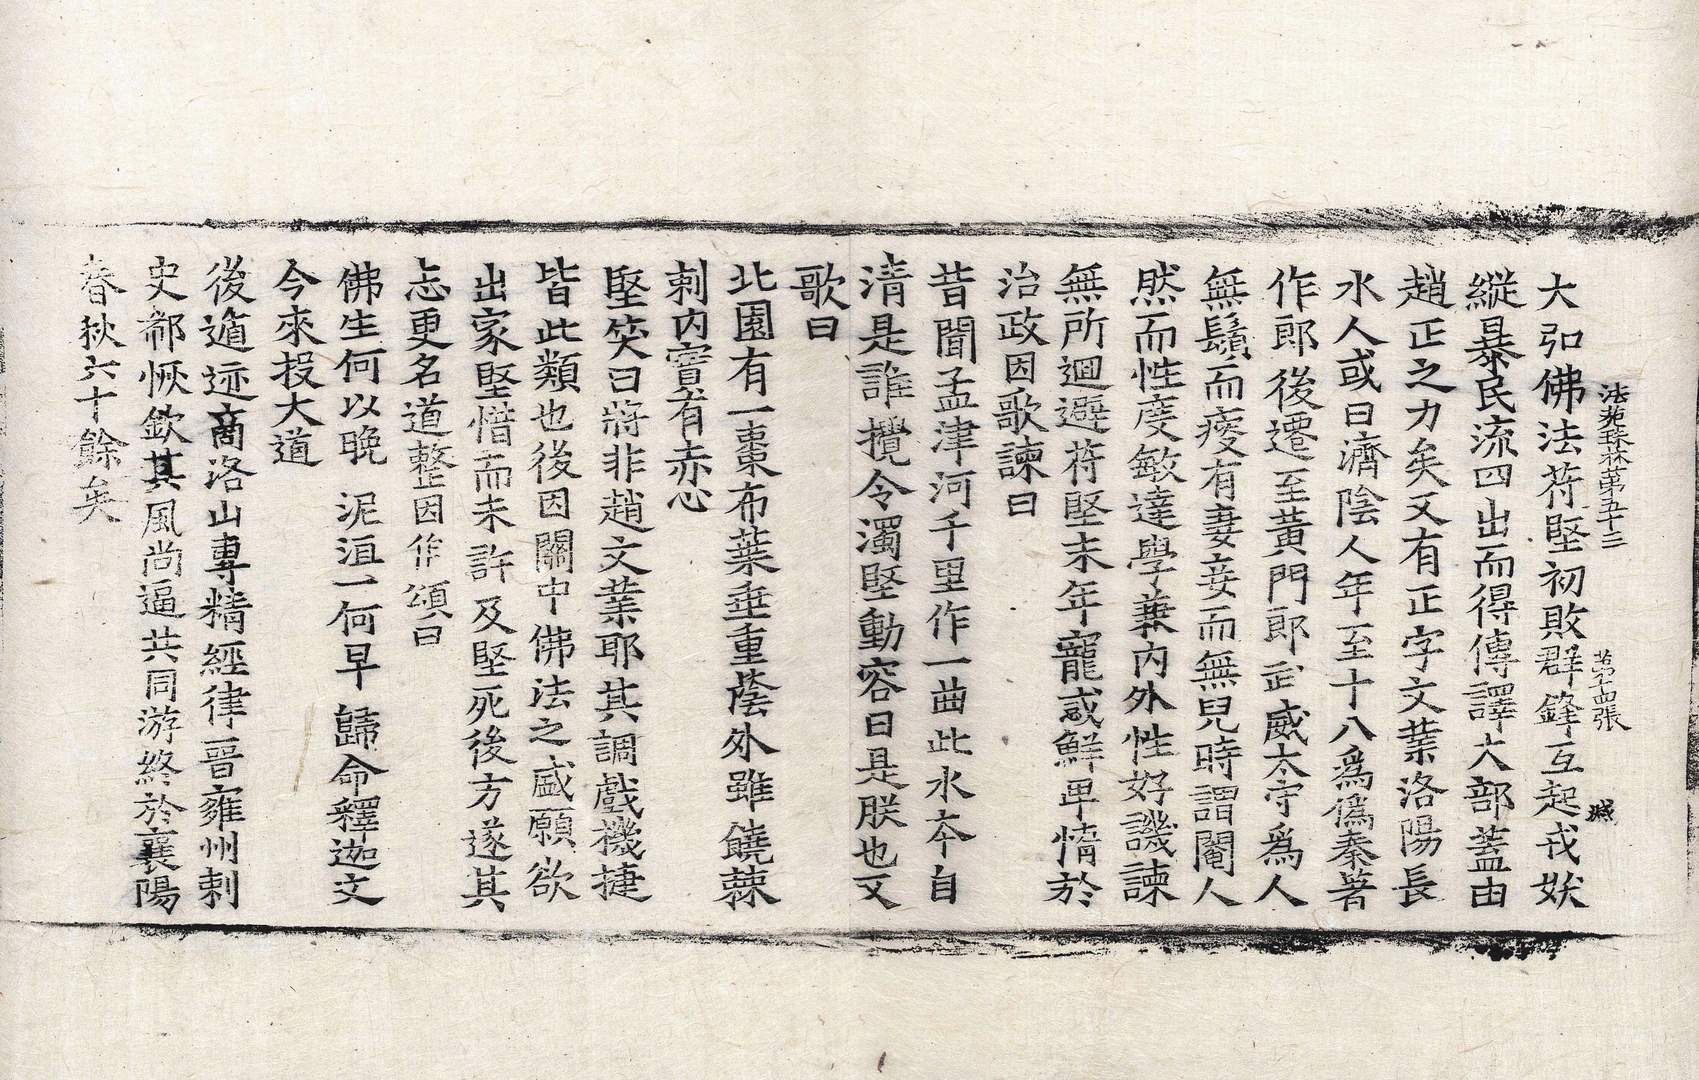 法苑珠林第五十三 第十四張 
大弘佛法苻堅初敗群鋒互起戎妖
縱暴民流四出而得傳譯大部蓋由
趙正之力矣又有正字文業洛陽長
水人或曰濟陰人年至十八爲僞秦著
作郎後遷至黃門郎武威太守爲人
無鬚而瘦有妻妾而無兒時謂閹人
然而性度敏達學兼內外性好譏諫
無所迴避苻堅末年寵惑鮮卑惰於
治政因歌諫曰
昔聞孟津河千里作一曲此水本自
清是誰攪令濁堅動容曰是朕也又
歌曰
北園有一棗布葉垂重蔭外雖饒棘
刺內實有赤心
堅笑曰將非趙文業耶其調戲機捷
皆此類也後因關中佛法之盛願欲
出家堅惜而未許及堅死後方遂其
志更名道整因作頌曰
佛生何以晚 泥洹一何早 歸命釋迦文
今來投大道
後遁迹商洛山專精經律晉雍州刺
史郗恢欽其風尚逼共同游終於襄陽
春秋六十餘矣